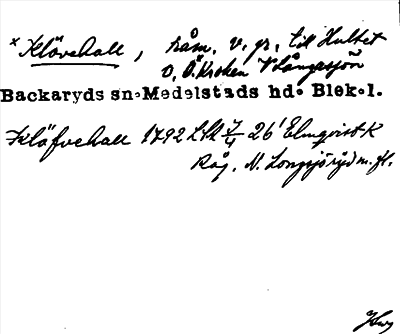 *Klövehall, råm. v. gr. till Hultet
o. Ö. Kroken V Långasjön
Backaryds sn. Medelstads hd. Blek.l.
Klöfvehall 1792 LSA 7/4 26' Elmqvist K
Råg. N. Longsjöryd m. fl.